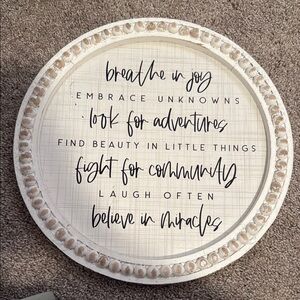 breathe in joy
EMBRACE UNKNOWNS
look for adventures
FIND BEAUTY IN LITTLE THINGS
fight for community
LAUGH OFTEN
believe in miracles